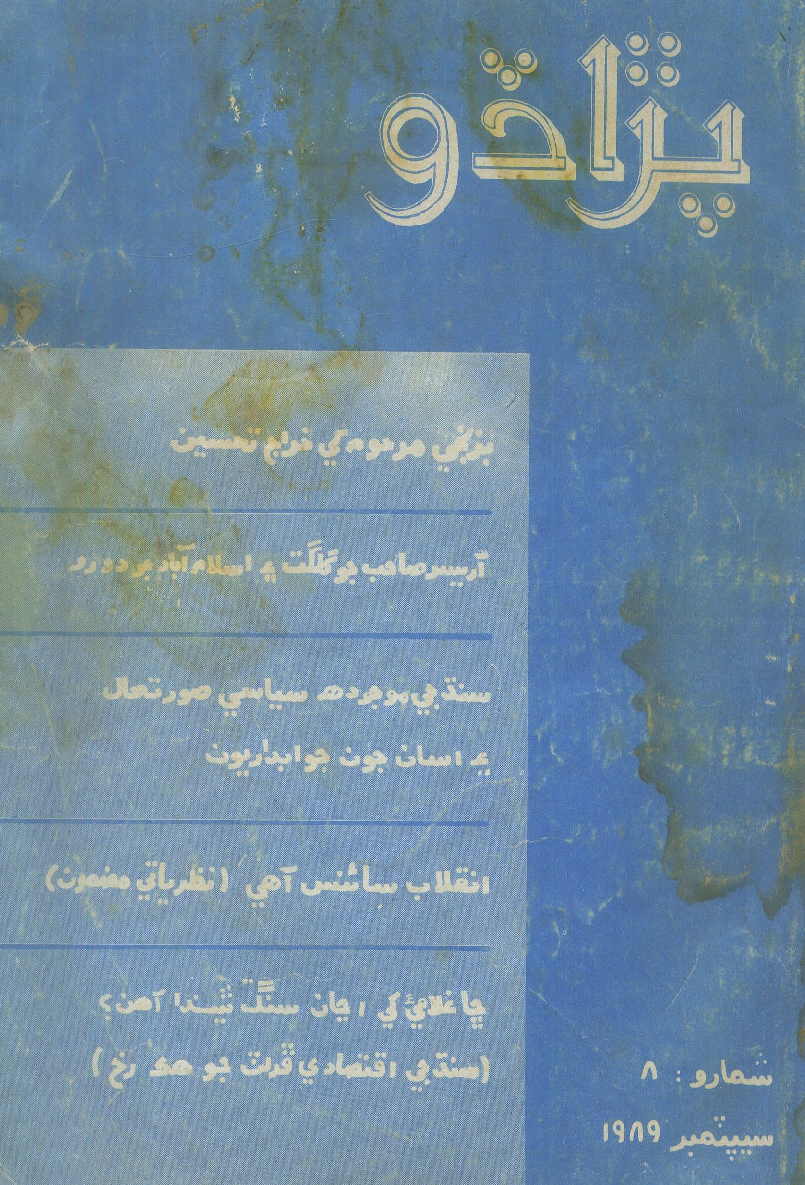 پڙاڏو
بزنجي مرحوم کي خراج تحسين
آريسر صاحب جو گلگت ۽ اسلام آباد جو دورو
سنڌ جي موجوده سياسي صورتحال
۽ اسان جون جوابداريون
انقلاب سائنس آهي (نظرياتي مضمون)
ڇا غلاميءَ کي اڃان سنڱ ٿيندا آهن؟
(سنڌ جي اقتصادي ڦرلٽ جو هڪ رخ)
شمارو: ۸
سيپٽمبر ۱۹۸۹